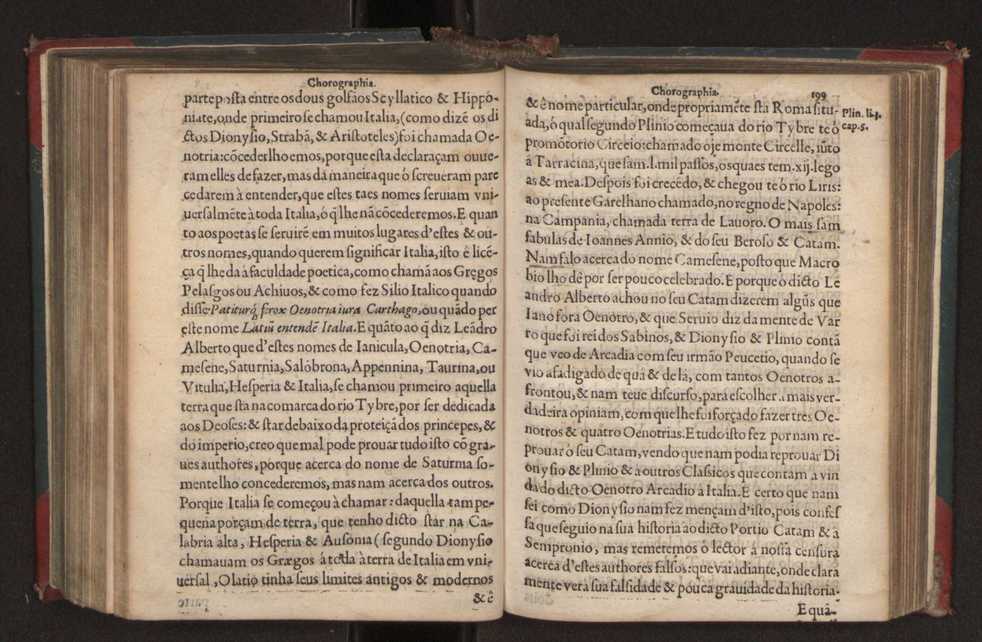 Chorographia.
parte posta entre os dous golfãos Scyllatico & Hippo-
niate, onde primeiro se chamou Italia, (como dizẽ os di
ctos Dionysio, Strabã, & Aristoteles) foi chamada Oe-
notria: cõcederlho emos, porque esta declaraçam ouue-
ram elles de fazer, mas da maneira que ò screueram pare
cedarem à entender, que estes taes nomes seruiam vni-
uersalmẽte à toda Italia, ò q̃ lhe nã cõcederemos. E quan
to aos poetas se seruirẽ em muitos lugares d'estes & ou-
tros nomes, quando querem significar Italia, isto ê licẽ-
ça q̃ lhe da à faculdade poetica, como chamã aos Gregos
Pelasgos ou Achiuos, & como fez Silio Italico quando
disse Patiturq; ferox Oenotria iura Carthago, ou quãdo per
este nome Latiũ entendẽ Italia. E quãto ao q̃ diz Leãdro
Alberto que d'estes nomes de Ianicula, Oenotria, Ca-
mesene, Saturnia, Salobrona, Appennina, Taurina, ou
Vitulia, Hesperia & Italia, se chamou primeiro aquella
terra que sta na comarca do rio Tybre, por ser dedicada
aos Deoses: & star debaixo da proteiçã dos principes, &
do imperio, creo que mal pode prouar tudo isto cõ gra-
ues authores, porque acerca do nome de Saturnia so-
mente lho concederemos, mas nam acerca dos outros.
Porque Italia se começou à chamar: daquella tam pe-
quena porçam de terra, que tenho dicto star na Ca-
labria alta, Hesperia & Ausonia (segundo Dionysio
chamauam os Grægos à toda à terra de Italia em vni-
uersal, O latio tinha seus limites antigos & modernos
& ê
Chorographia. 199
& ê nome particular, onde propriamẽte sta Roma situ-
ada, ò qual segundo Plinio começaua do rio Tybre te ò
promõtorio Circeio: chamado oje monte Circelle, iũto
à Tarracina, que sam. l. mil passos, os quaes tem. xij. lego
as & mea. Despois foi crecẽdo, & chegou te ò rio Liris:
ao presente Garelhano chamado, no regno de Napoles:
na Campania, chamada terra de Lauoro. O mais sam
fabulas de Ioannes Annio, & do seu Beroso & Catam.
Nam falo acerca do nome Camesene, posto que Macro
bio lho dê por ser pouco celebrado. E porque ò dicto Le
andro Alberto achou no seu Catam dizerem algũs que
Iano fora Oenotro, & que Seruio diz da mente de Var
ro que foi rei dos Sabinos, & Dionysio & Plinio contã
que veo de Arcadia com seu irmão Peucetio, quando se
vio afadigado de qua & de la, com tantos Oenotros a-
frontou, & nam teue discurso, para escolher a mais ver-
dadeira opiniam, com que lhe fui forçado fazer tres Oe-
notros & quatro Oenotrias. E tudo isto fez por nam re-
prouar ò seu Catam, vendo que nam podia reprouar Di
onysio & Plinio & à outros Classicos que contam a vin
da do dicto Oenotro Arcadio à Italia. E certo que nam
sei como Dionysio nam fez mençam d'isto, pois confes
sa que seguio na sua historia ao dicto Portio Catam & à
Sempronio, mas remetemos ò lector à nossa censura
acerca d'estes authores falsos: que vai adiante, onde clara
mente vera sua falsidade & pouca grauidade da historia.
E quã-
Plin. li.3.
cap.5.